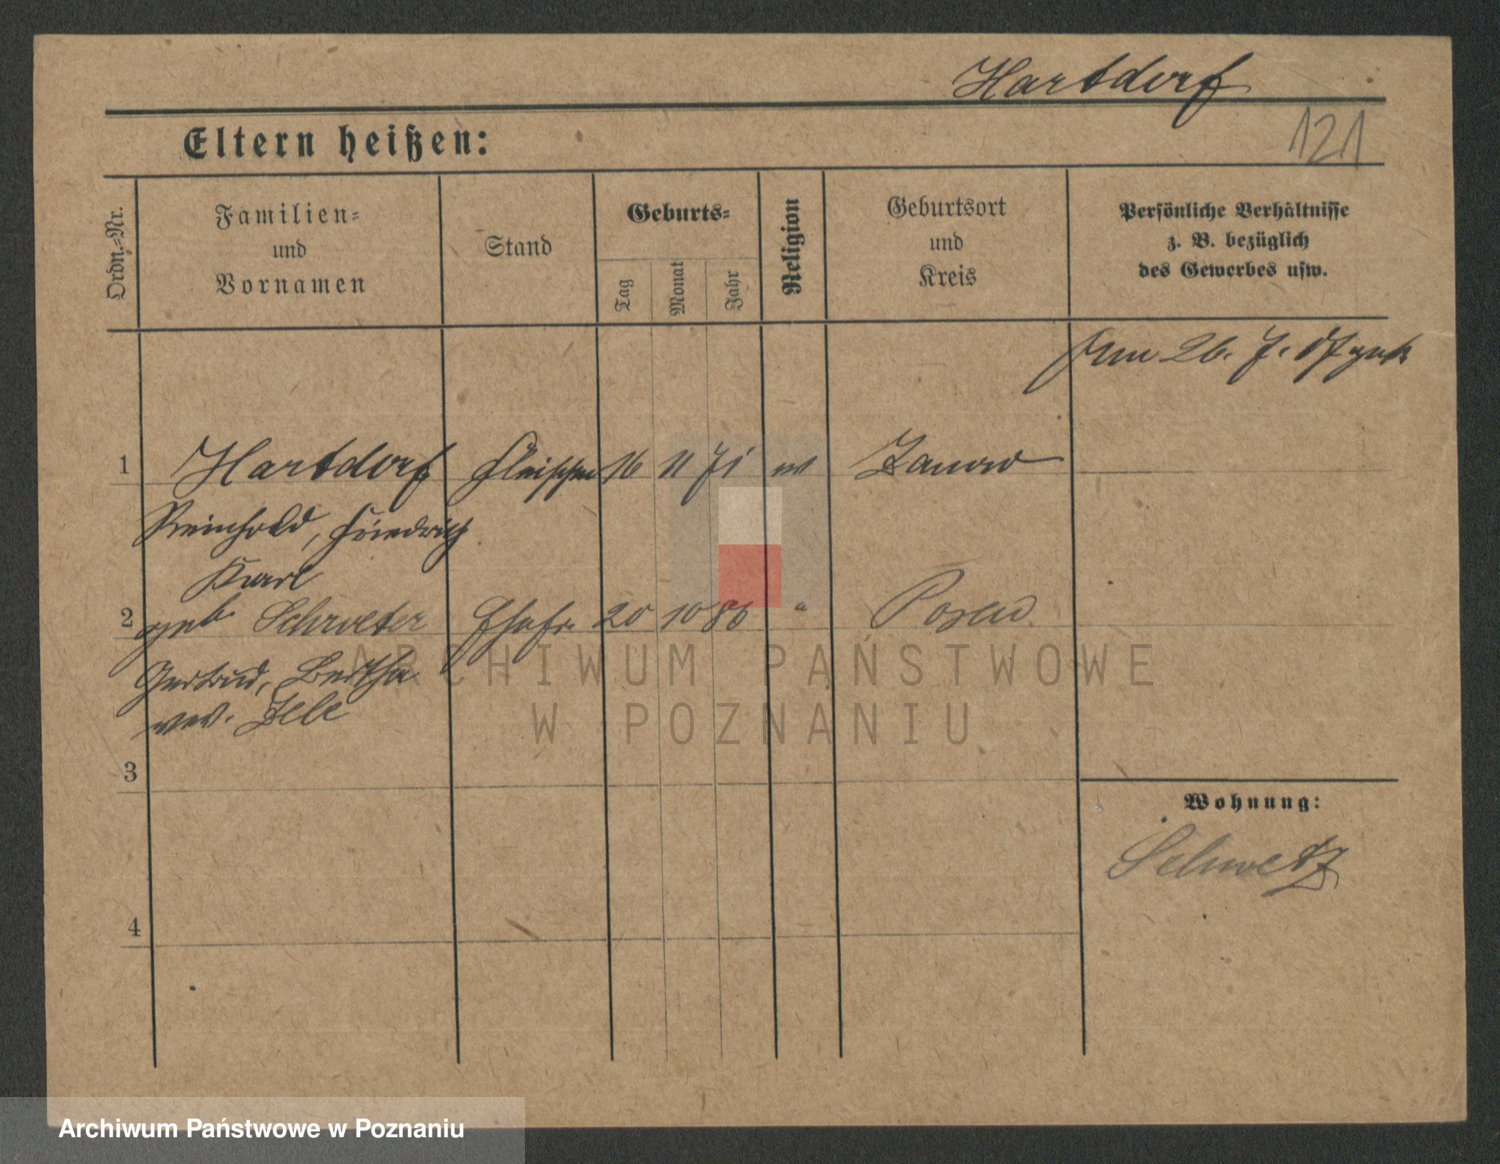 Hartdorf
121
Eltern heißen:
Ordn.-Nr.
Familien-
und
Vornamen
Stand
Geburts-
Tag
Monat
Jahr
Religion
Geburtsort
und
Kreis
Persönliche Verhältnisse
z. B. bezüglich
des Gewerbes usw.
26. 7. 07
1 Hartdorf Fleischer 16 11 71 ev Zanow
Reinhold, Friedrich
Karl
2 geb Schroeter Ehefr. 20 10 80 " Posen
Gertrud, Bertha
3
4
Wohnung:
Schwetz
ARCHIWUM PAŃSTWOWE
W POZNANIU
Archiwum Państwowe w Poznaniu